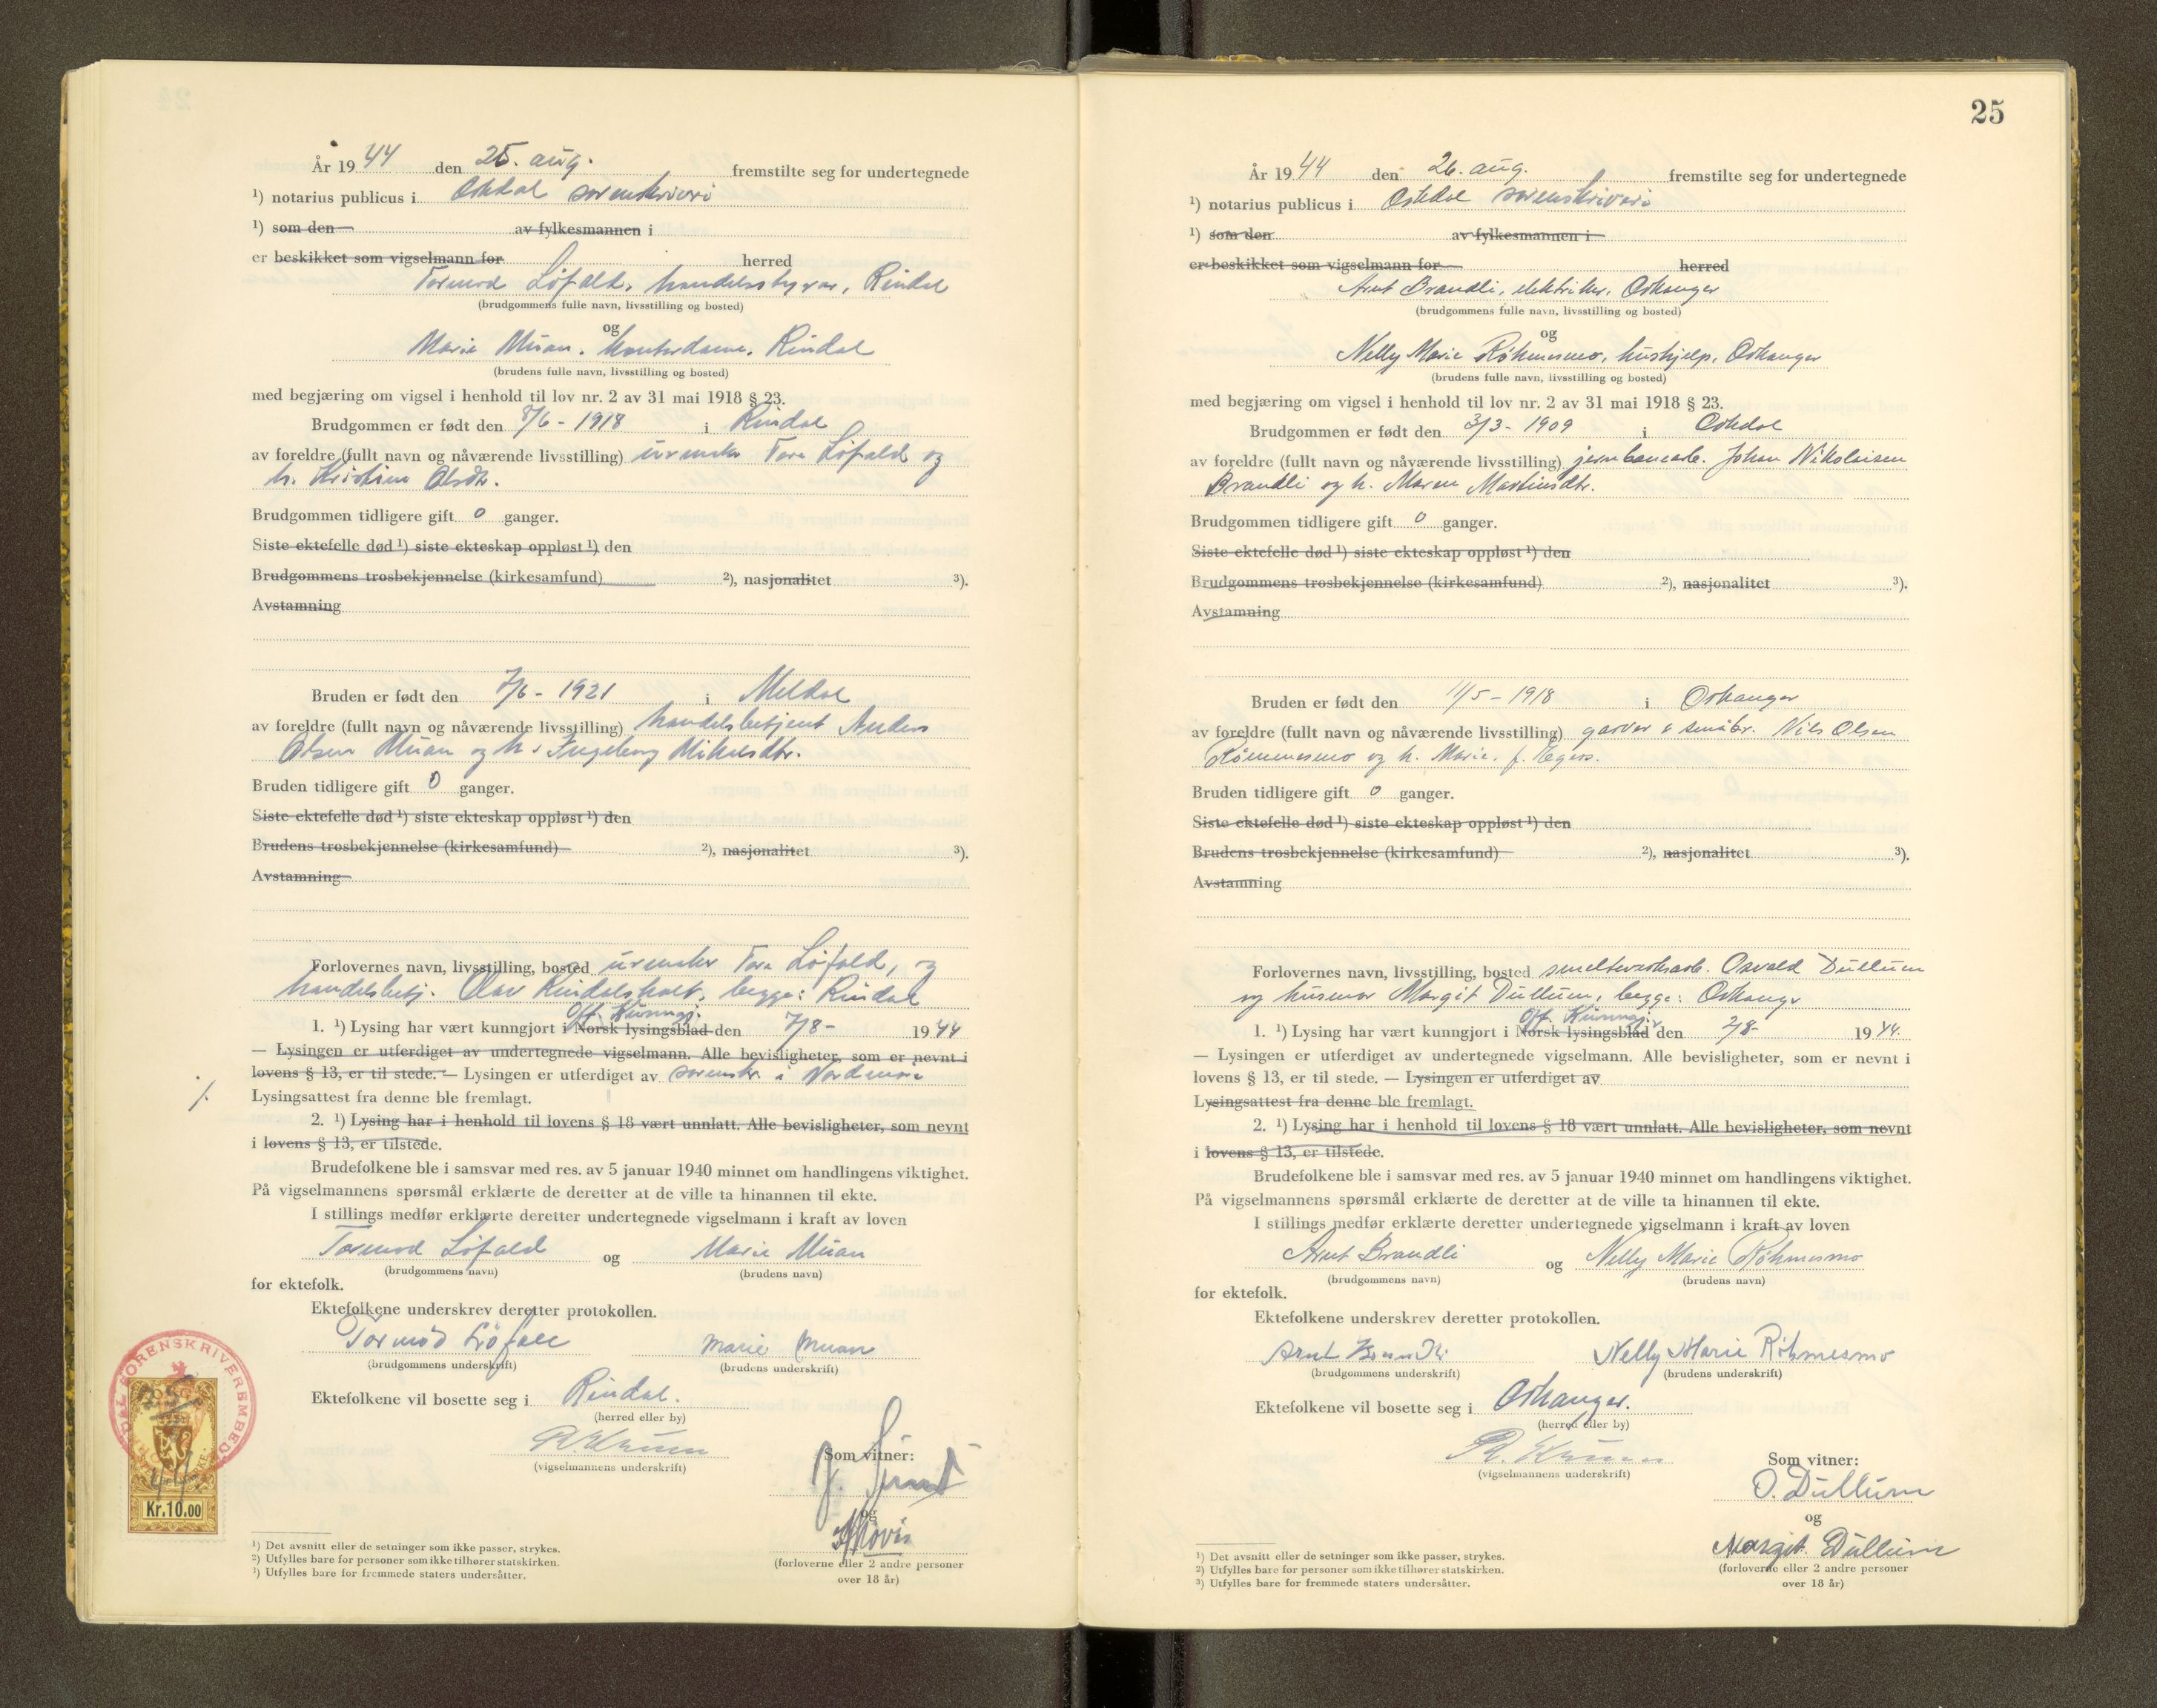 År 1944 den 25. aug. fremstilte seg for undertegnede
¹) notarius publicus i Orkdal sorenskriveri
¹) som den av fylkesmannen i
er beskikket som vigselmann for herred
Tormod Löfald, handelsstyrer, Rindal
(brudgommens fulle navn, livsstilling og bosted)
og
Marie Muan, kontordame, Rindal
(brudens fulle navn, livsstilling og bosted)
med begjæring om vigsel i henhold til lov nr. 2 av 31 mai 1918 § 23.
Brudgommen er født den 8/6 - 1918 i Rindal
av foreldre (fullt navn og nåværende livsstilling) urmaker Tore Löfald og
h. Kristine Olsdtr.
Brudgommen tidligere gift 0 ganger.
Siste ektefelle død ¹) siste ekteskap oppløst ¹) den
Brudgommens trosbekjennelse (kirkesamfund) ²), nasjonalitet ³).
Avstamning
Bruden er født den 7/6 - 1921 i Meldal
av foreldre (fullt navn og nåværende livsstilling) handelsbetjent Anders
Olsen Muan og h. Ingeborg Mikalsdtr.
Bruden tidligere gift 0 ganger.
Siste ektefelle død ¹) siste ekteskap oppløst ¹) den
Brudens trosbekjennelse (kirkesamfund) ²), nasjonalitet ³).
Avstamning
Forlovernes navn, livsstilling, bosted urmaker Tore Löfald, og
handelsbetj. Olav Rindalsholt, begge: Rindal
Off. Kunngj.
1. ¹) Lysing har vært kunngjort i Norsk lysingsblad den 7/8 - 1944
— Lysingen er utferdiget av undertegnede vigselmann. Alle bevisligheter, som er nevnt i
lovens § 13, er til stede. — Lysingen er utferdiget av sorenskr. i Nordmøre
./. Lysingsattest fra denne ble fremlagt.
2. ¹) Lysing har i henhold til lovens § 18 vært unnlatt. Alle bevisligheter, som nevnt
i lovens § 13, er tilstede.
Brudefolkene ble i samsvar med res. av 5 januar 1940 minnet om handlingens viktighet.
På vigselmannens spørsmål erklærte de deretter at de ville ta hinannen til ekte.
I stillings medfør erklærte deretter undertegnede vigselmann i kraft av loven
Tormod Löfald og Marie Muan
(brudgommens navn) (brudens navn)
for ektefolk.
Ektefolkene underskrev deretter protokollen.
Tormod Löfald Marie Muan
(brudgommens underskrift) (brudens underskrift)
Ektefolkene vil bosette seg i Rindal.
(herred eller by)
(vigselmannens underskrift)
Som vitner:
og
(forloverne eller 2 andre personer
over 18 år)
SORENSKRIVEREMBED
25/8
44.
Kr.10.00
¹) Det avsnitt eller de setninger som ikke passer, strykes.
²) Utfylles bare for personer som ikke tilhører statskirken.
³) Utfylles bare for fremmede staters undersåtter.
25
År 1944 den 26. aug. fremstilte seg for undertegnede
¹) notarius publicus i Orkdal sorenskriveri
¹) som den av fylkesmannen i
er beskikket som vigselmann for herred
Arnt Brandli, elektriker, Orkanger
(brudgommens fulle navn, livsstilling og bosted)
og
Nelly Marie Röhmesmo, hushjelp, Orkanger
(brudens fulle navn, livsstilling og bosted)
med begjæring om vigsel i henhold til lov nr. 2 av 31 mai 1918 § 23.
Brudgommen er født den 3/3 - 1909 i Orkdal
av foreldre (fullt navn og nåværende livsstilling) jernbanearb. Johan Nikolaisen
Brandli og h. Maren Martinsdtr.
Brudgommen tidligere gift 0 ganger.
Siste ektefelle død ¹) siste ekteskap oppløst ¹) den
Brudgommens trosbekjennelse (kirkesamfund) ²), nasjonalitet ³).
Avstamning
Bruden er født den 11/5 - 1918 i Orkanger
av foreldre (fullt navn og nåværende livsstilling) garver & småbr. Nils Olsen
Römmesmo og h. Marie, f.
Bruden tidligere gift 0 ganger.
Siste ektefelle død ¹) siste ekteskap oppløst ¹) den
Brudens trosbekjennelse (kirkesamfund) ²), nasjonalitet ³).
Avstamning
Forlovernes navn, livsstilling, bosted smelteverksarb. Osvald Dullum
og husmor Margit Dullum, begge: Orkanger
Off. Kunngj.
1. ¹) Lysing har vært kunngjort i Norsk lysingsblad den 2/8- 1944.
— Lysingen er utferdiget av undertegnede vigselmann. Alle bevisligheter, som er nevnt i
lovens § 13, er til stede. — Lysingen er utferdiget av
Lysingsattest fra denne ble fremlagt.
2. ¹) Lysing har i henhold til lovens § 18 vært unnlatt. Alle bevisligheter, som nevnt
i lovens § 13, er tilstede.
Brudefolkene ble i samsvar med res. av 5 januar 1940 minnet om handlingens viktighet.
På vigselmannens spørsmål erklærte de deretter at de ville ta hinannen til ekte.
I stillings medfør erklærte deretter undertegnede vigselmann i kraft av loven
Arnt Brandli og Nelly Marie Röhmesmo
(brudgommens navn) (brudens navn)
for ektefolk.
Ektefolkene underskrev deretter protokollen.
Arnt Brandli Nelly Marie Röhmesmo
(brudgommens underskrift) (brudens underskrift)
Ektefolkene vil bosette seg i Orkanger.
(herred eller by)
(vigselmannens underskrift)
Som vitner:
O. Dullum
og
Margit Dullum
(forloverne eller 2 andre personer
over 18 år)
¹) Det avsnitt eller de setninger som ikke passer, strykes.
²) Utfylles bare for personer som ikke tilhører statskirken.
³) Utfylles bare for fremmede staters undersåtter.